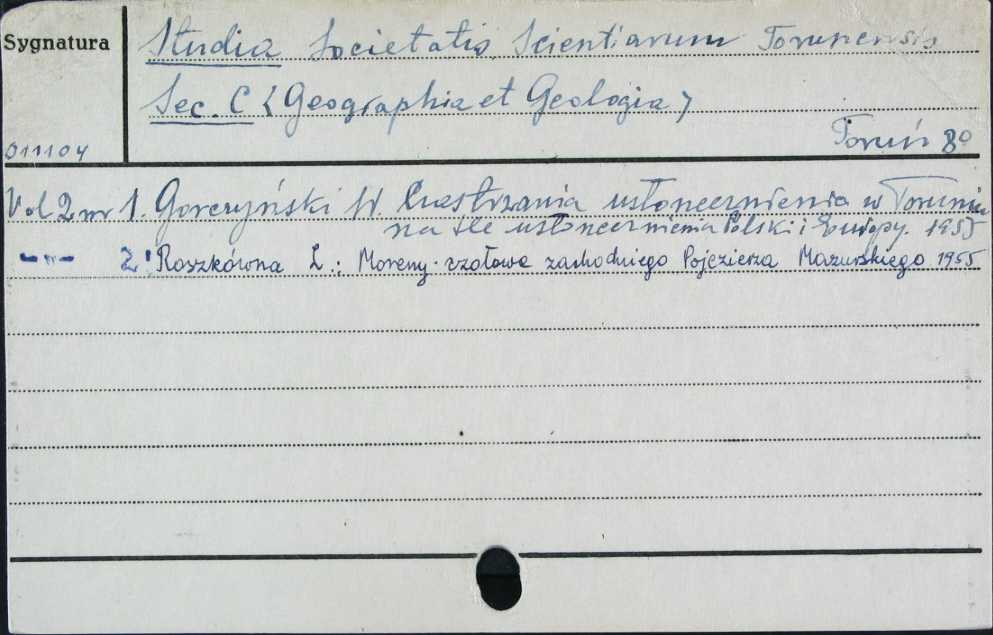 Sygnatura
Studia Societatis Scientiarum Torunensis
Sec. C <Geographia et Geologia>
Toruń 8º
011104
Vol 2 nr 1. Gorczyński W. usłonecznienia w Toruniu
na tle usłonecznienia Polski i Europy. 1955
-"- 2: Roszkówna L.: Moreny czołowe zachodniego Pojezierza Mazurskiego 1955